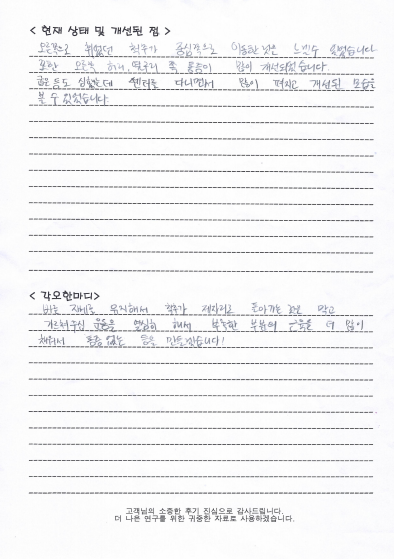 < 현재 상태 및 개선된 점 >
오른쪽으로 휘었던 척추가 중심적으로 이동한 것을 느낄수 있었습니다
또한 오른쪽 허리, 옆구리 쪽 통증이 많이 개선되었습니다.
등도 심했는데 센터를 다니면서 많이 펴지고 개선된 모습을
볼 수 있었습니다
< 각오한마디>
바른 자세로 유지해서 척추가 제자리로 돌아가는 것을 막고
가르쳐주신 운동을 열심히 해서 부족한 부분의 근육을 더 많이
채워서 통증 없는 등을 만들겠습니다!
고객님의 소중한 후기 진심으로 감사드립니다.
더 나은 연구를 위한 귀중한 자료로 사용하겠습니다.